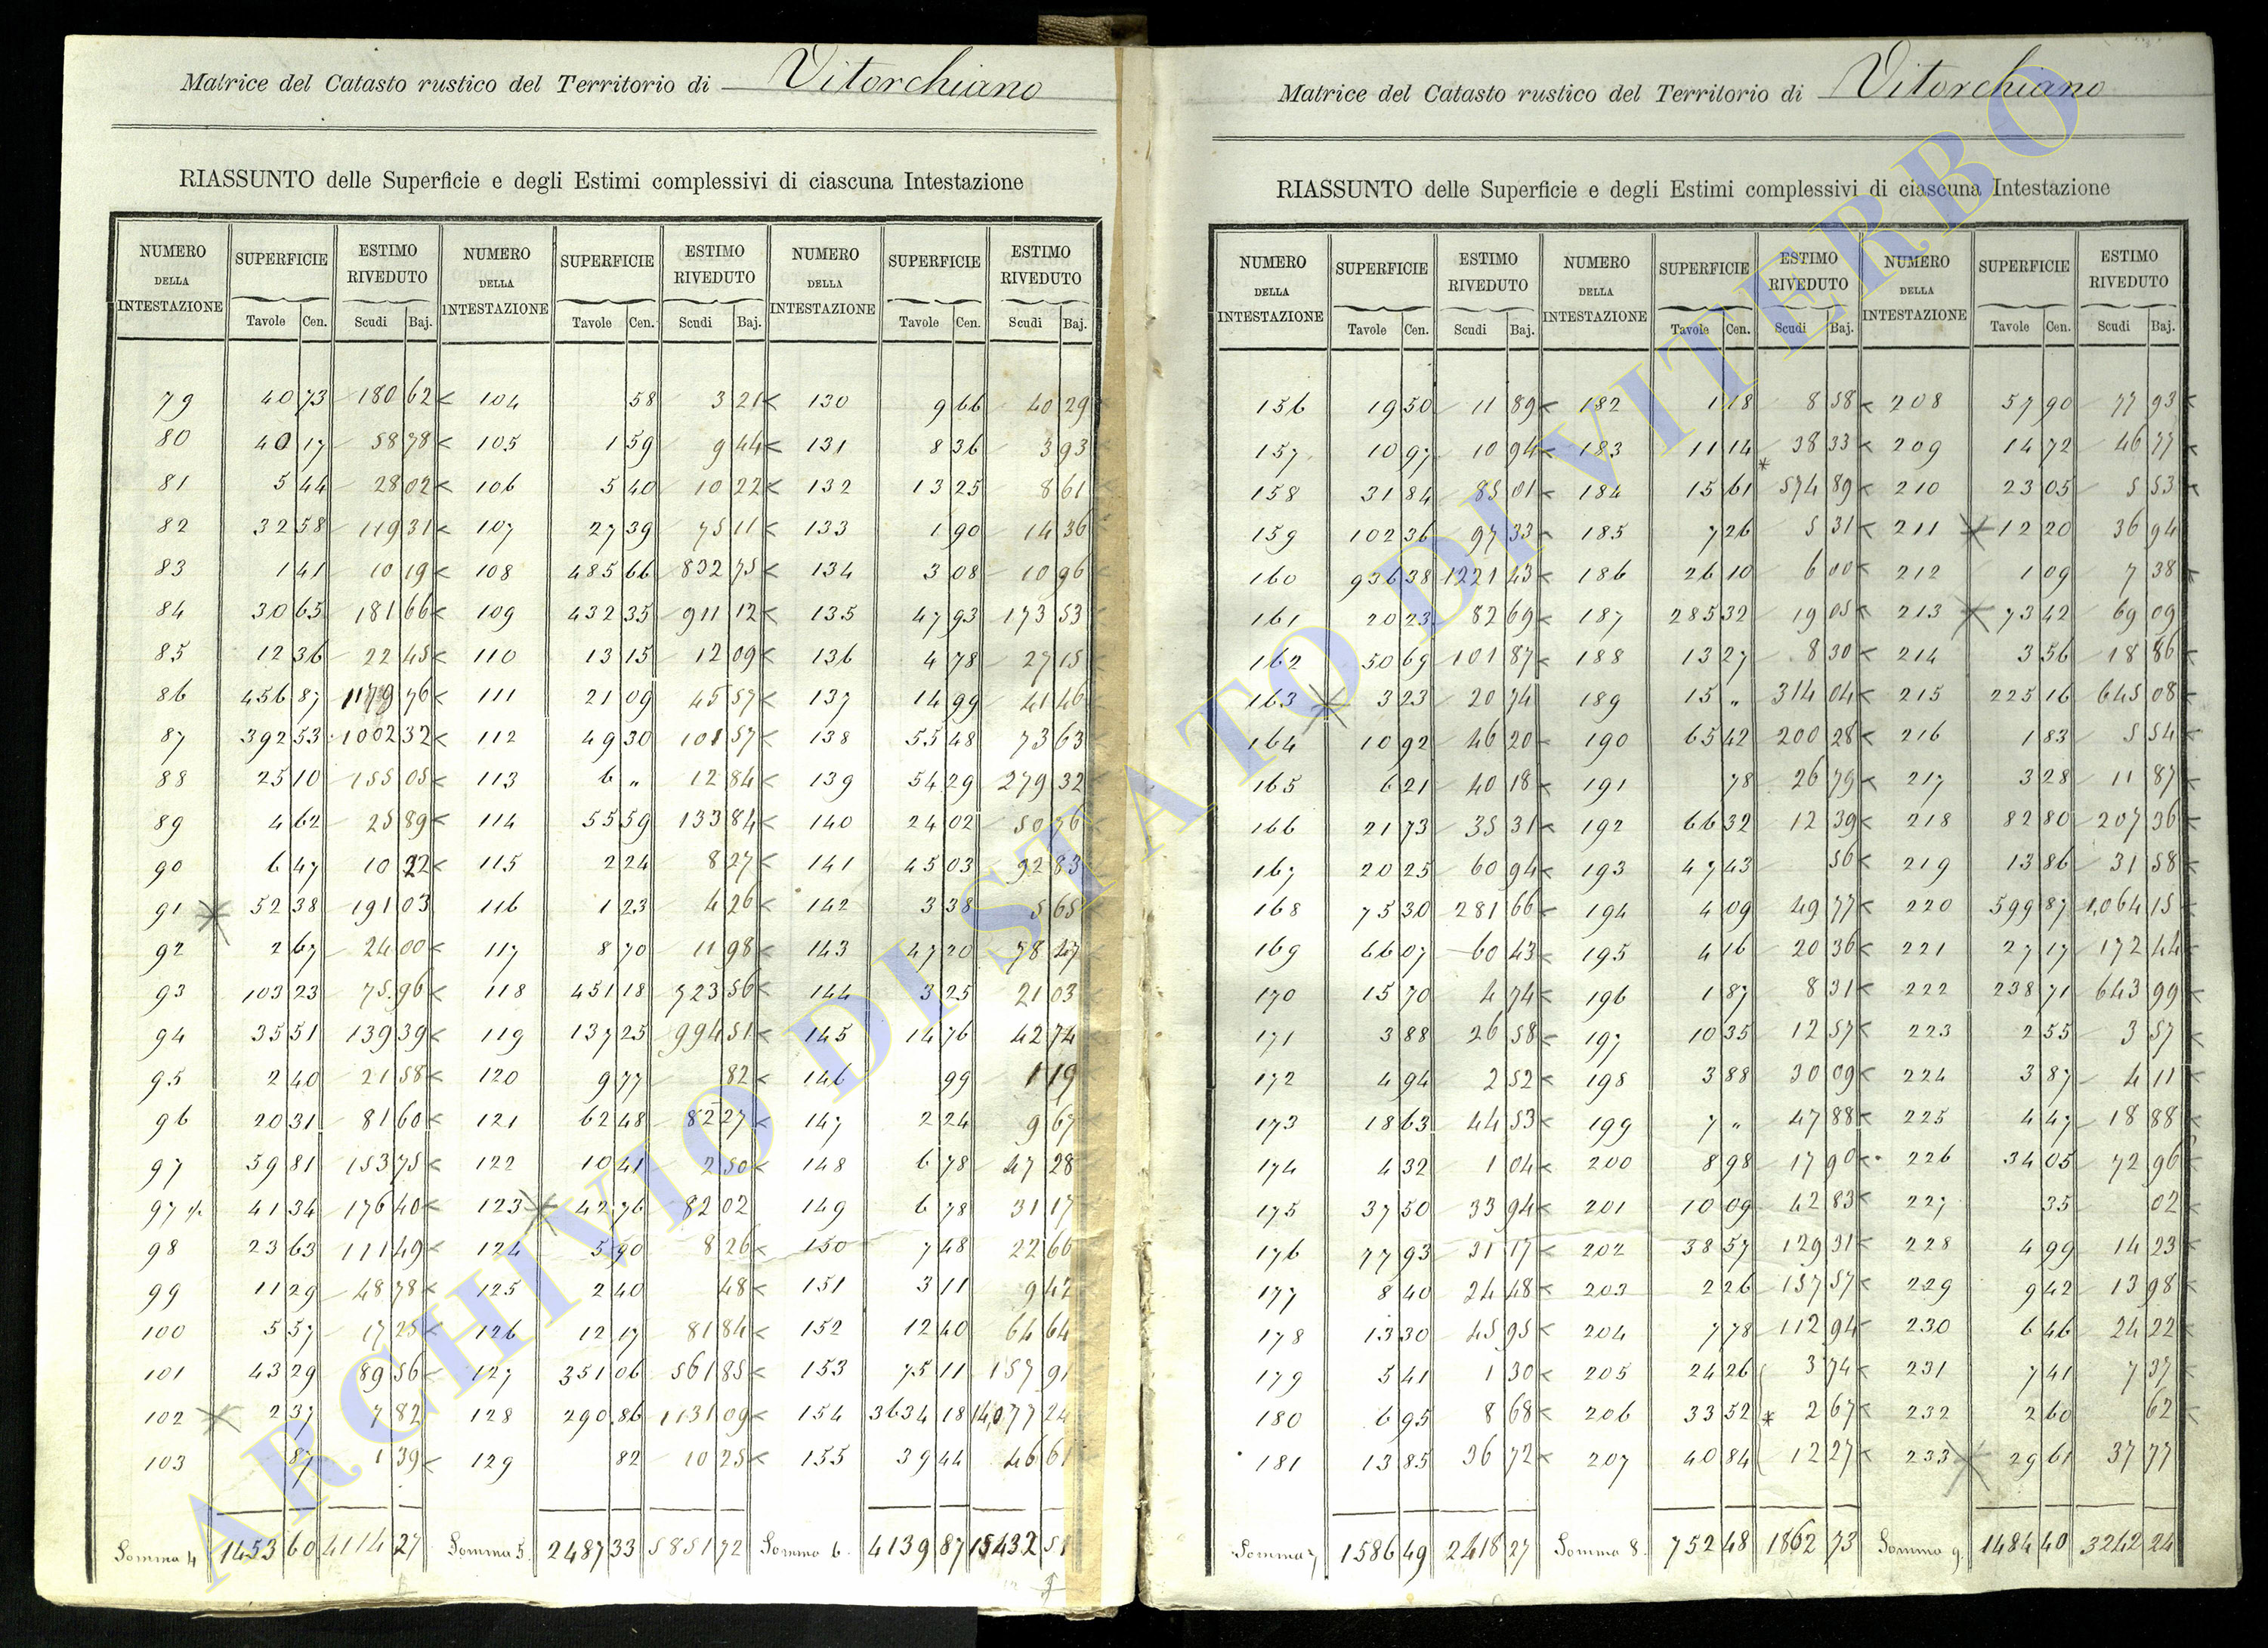 Matrice del Catasto rustico del Territorio di Vitorchiano
RIASSUNTO delle Superficie e degli Estimi complessivi di ciascuna Intestazione
NUMERO DELLA INTESTAZIONE SUPERFICIE ESTIMO RIVEDUTO NUMERO DELLA INTESTAZIONE SUPERFICIE ESTIMO RIVEDUTO NUMERO DELLA INTESTAZIONE SUPERFICIE ESTIMO RIVEDUTO
Tavole Cen. Scudi Baj. Tavole Cen. Scudi Baj. Tavole Cen. Scudi Baj.
79 40 73 180 62 104 58 3 21 130 9 66 40 29
80 40 17 58 78 105 1 59 9 44 131 8 36 3 93
81 5 44 28 02 106 5 40 10 22 132 13 25 8 61
82 32 58 119 31 107 27 39 75 11 133 1 90 14 36
83 1 41 10 19 108 485 66 832 75 134 3 08 10 96
84 30 65 181 66 109 432 35 911 12 135 47 93 173 53
85 12 36 22 45 110 13 15 12 09 136 4 78 27 15
86 456 87 76 111 21 09 45 57 137 14 99 41 46
87 392 53 1002 32 112 49 30 101 57 138 55 48 73 63
88 25 10 155 05 113 6 „ 12 84 139 54 29 279 32
89 4 62 25 89 114 55 59 133 84 140 24 02 50 76
90 6 47 10 22 115 2 24 8 27 141 45 03 92 83
91 52 38 191 03 116 1 23 4 26 142 3 38 5 65
92 2 67 24 00 117 8 70 11 98 143 47 20 58 47
93 103 23 75 96 118 451 18 723 56 144 3 25 21 03
94 35 51 139 39 119 137 25 994 51 145 14 76 42 74
95 2 40 21 58 120 9 77 82 146 99 1 19
96 20 31 81 60 121 62 48 82 27 147 2 24 9 67
97 59 81 153 75 122 10 41 2 50 148 6 78 47 28
97 ½ 41 34 176 40 123 42 76 82 02 149 6 78 31 17
98 23 63 111 49 124 5 90 8 26 150 7 48 22 66
99 11 29 48 78 125 2 40 48 151 3 11 9 42
100 5 57 17 25 126 12 17 81 84 152 12 40 64 64
101 43 29 89 56 127 351 06 561 85 153 75 11 157 91
102 2 37 7 82 128 290 86 1131 09 154 3634 18 14,077 24
103 87 1 39 129 82 10 25 155 39 44 46 61
Somma 4 1453 60 4114 27 Somma 5. 2487 33 5851 72 Somma 6. 4139 87 15432 51
Matrice del Catasto rustico del Territorio di Vitorchiano
RIASSUNTO delle Superficie e degli Estimi complessivi di ciascuna Intestazione
NUMERO DELLA INTESTAZIONE SUPERFICIE ESTIMO RIVEDUTO NUMERO DELLA INTESTAZIONE SUPERFICIE ESTIMO RIVEDUTO NUMERO DELLA INTESTAZIONE SUPERFICIE ESTIMO RIVEDUTO
Tavole Cen. Scudi Baj. Tavole Cen. Scudi Baj. Tavole Cen. Scudi Baj.
156 19 50 11 89 182 1 18 8 58 208 57 90 77 93
157 10 97 10 94 183 11 14 38 33 209 14 72 46 77
158 31 84 85 01 184 15 61 574 89 210 23 05 5 53
159 102 36 97 33 185 7 26 5 31 211 12 20 36 94
160 936 38 1221 43 186 26 10 6 00 212 1 09 7 38
161 20 23 82 69 187 285 32 19 05 213 73 42 69 09
162 50 69 101 87 188 13 27 8 30 214 3 56 18 86
163 3 23 20 74 189 15 „ 314 04 215 225 16 645 08
164 10 92 46 20 190 65 42 200 28 216 1 83 5 54
165 6 21 40 18 191 78 26 79 217 3 28 11 87
166 21 73 35 31 192 66 32 12 39 218 82 80 207 36
167 20 25 60 94 193 47 43 56 219 13 86 31 58
168 75 30 281 66 194 4 09 49 77 220 599 87 1,064 15
169 66 07 60 43 195 4 16 20 36 221 27 17 172 44
170 15 70 4 74 196 1 87 8 31 222 238 71 643 99
171 3 88 26 58 197 10 35 12 57 223 2 55 3 57
172 4 94 2 52 198 3 88 30 09 224 3 87 4 11
173 18 63 44 53 199 7 „ 47 88 225 4 47 18 88
174 4 32 1 04 200 8 98 17 90 226 34 05 72 96
175 37 50 33 94 201 10 09 42 83 227 35 02
176 77 93 31 17 202 38 57 129 31 228 4 99 14 23
177 8 40 24 48 203 2 26 157 57 229 9 42 13 98
178 13 30 45 95 204 7 78 112 94 230 6 46 24 22
179 5 41 1 30 205 24 26 3 74 231 7 41 7 37
180 6 95 8 68 206 33 52 2 67 232 2 60 62
181 13 85 36 72 207 40 84 12 27 233 29 61 37 77
Somma 7 1586 49 2418 27 Somma 8. 752 48 1862 73 Somma 9. 1484 40 3242 24
ARCHIVIO DI STATO DI VITERBO